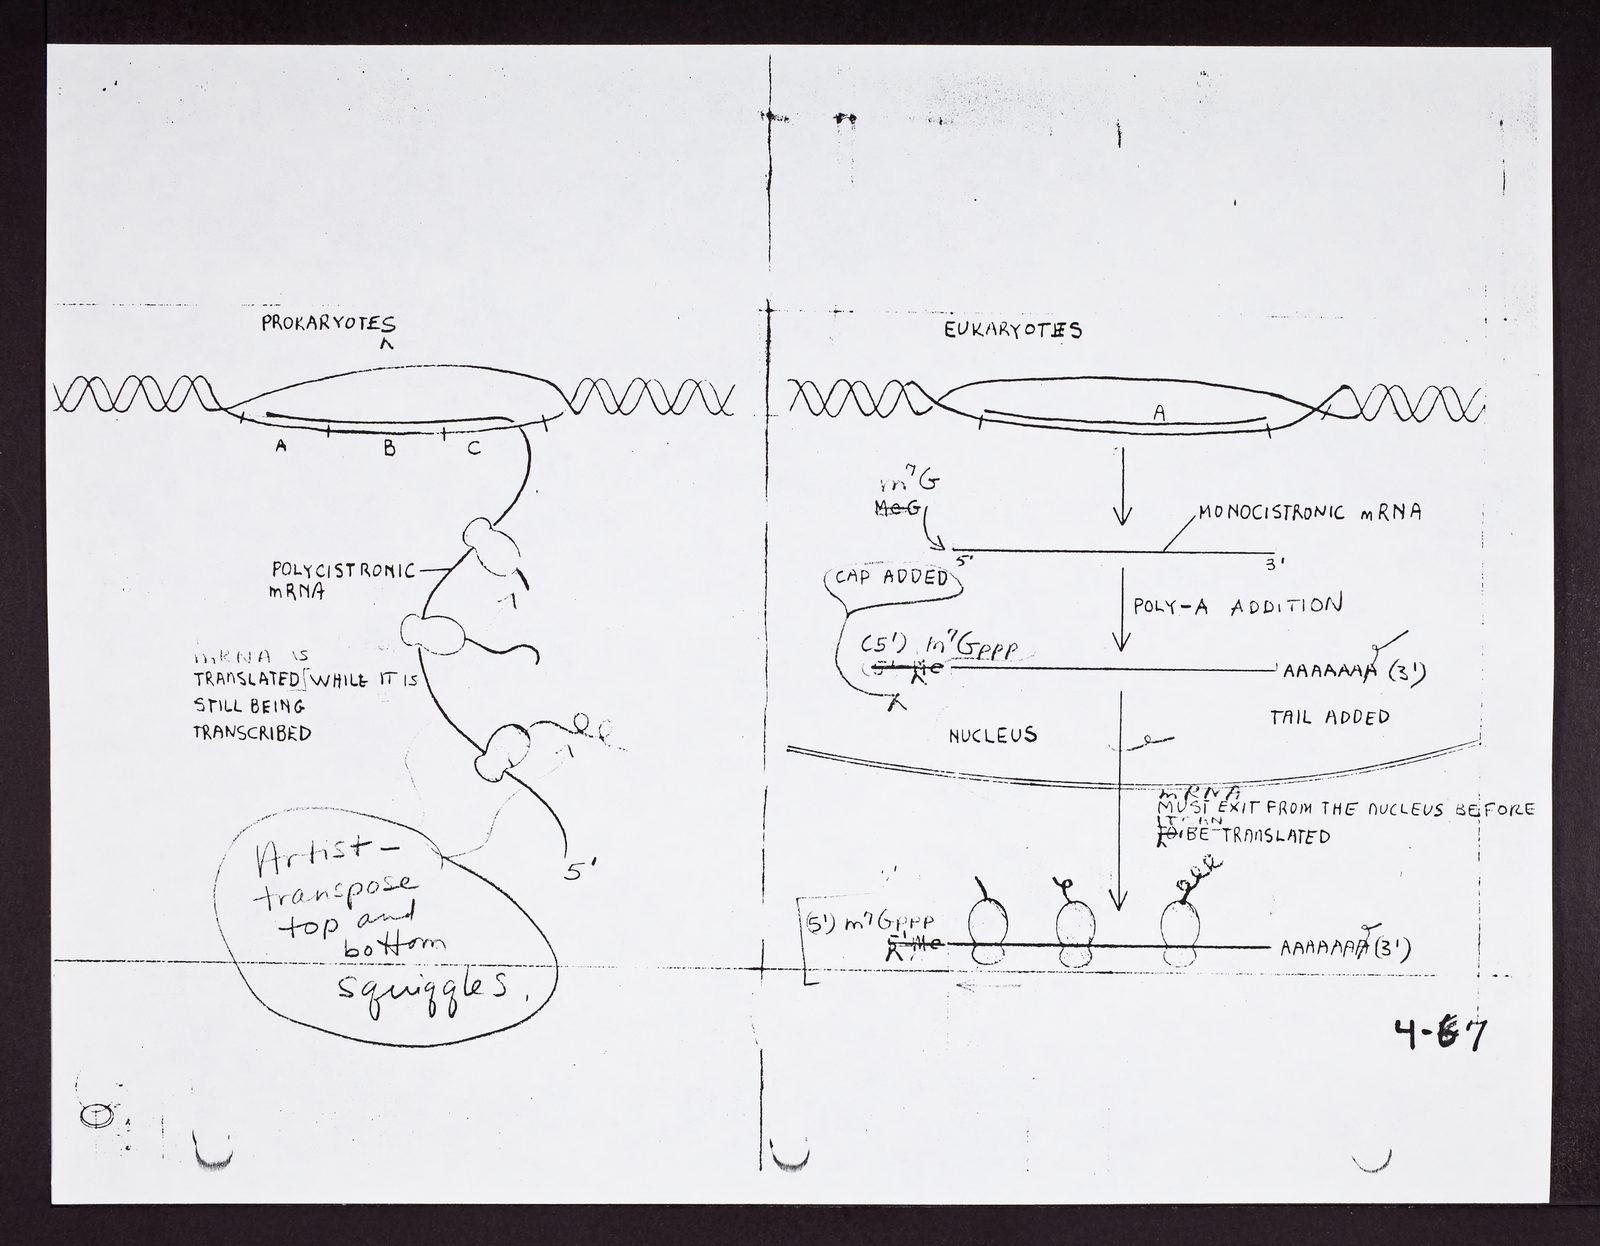 PROKARYOTES
A
B
C
POLYCISTRONIC
mRNA
mRNA IS
TRANSLATED WHILE IT IS
STILL BEING
TRANSCRIBED
5'
Artist –
transpose
top and
bottom
squiggles.
EUKARYOTES
A
m⁷G
MeG
MONOCISTRONIC mRNA
5'
3'
CAP ADDED
POLY-A ADDITION
(5') m⁷Gppp
5' Me
AAAAAAA (3')
TAIL ADDED
NUCLEUS
mRNA
MUST EXIT FROM THE NUCLEUS BEFORE
IT
BE TRANSLATED
(5') m⁷Gppp
5' Me
AAAAAAA (3')
4-67